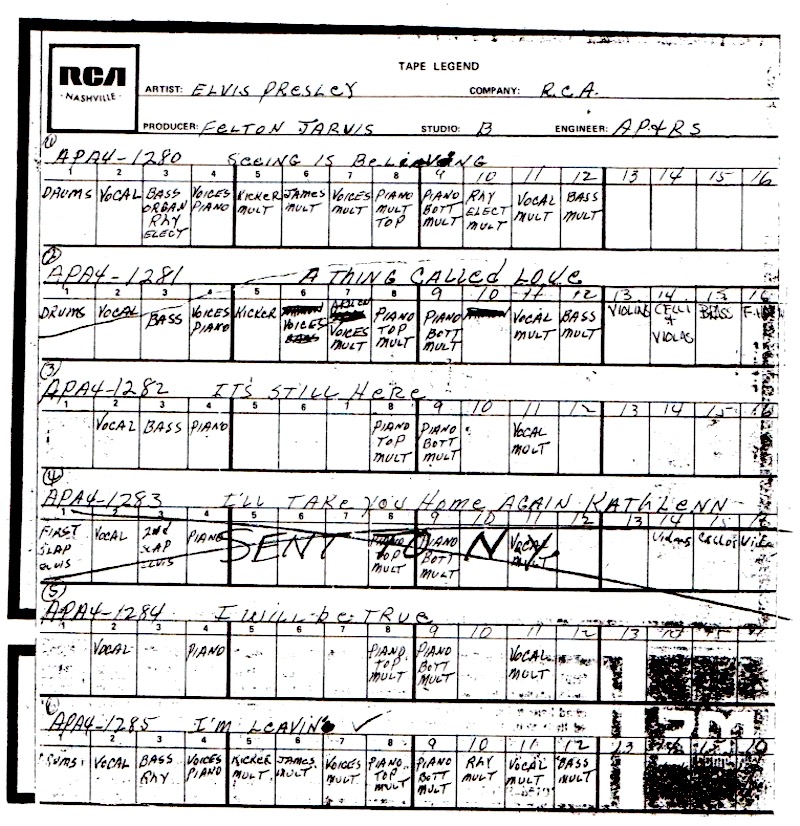 TAPE LEGEND
RCA
- NASHVILLE -
ARTIST: ELVIS PRESLEY COMPANY: R.C.A.
PRODUCER: FELTON JARVIS STUDIO: B ENGINEER: AP+RS
(1)
APA4-1280 SEEING IS BELIEVING
1 2 3 4 5 6 7 8 9 10 11 12 13 14 15 16
DRUMS VOCAL BASS VOICES KICKER JAMES VOICES PIANO PIANO RHY VOCAL BASS
ORGAN PIANO MULT MULT MULT MULT BOTT ELECT MULT MULT
RHY TOP MULT MULT
ELECT
(2)
APA4-1281 A THING CALLED LOVE
1 2 3 4 5 6 7 8 9 10 11 12 13 14 15 16
DRUMS VOCAL BASS VOICES KICKER VOICES VOICES PIANO PIANO VOCAL BASS VIOLINS CELLI BASS
PIANO MULT TOP BOTT MULT MULT +
MULT MULT VIOLAS
(3)
APA4-1282 ITS STILL HERE
1 2 3 4 5 6 7 8 9 10 11 12 13 14 15 16
VOCAL BASS PIANO PIANO PIANO VOCAL
TOP BOTT MULT
MULT MULT
(4)
APA4-1283 I'LL TAKE YOU HOME AGAIN KATHLENN
1 2 3 4 5 6 7 8 9 10 11 12 13 14 15
FIRST VOCAL 2nd PIANO PIANO PIANO VOCAL Violas Cellos
SLAP SLAP TOP BOTT MULT
ELVIS ELVIS MULT MULT
SENT TO N.Y.
(5)
APA4-1284 I WILL BE TRUE
1 2 3 4 5 6 7 8 9 10 11 12 13
VOCAL PIANO PIANO PIANO VOCAL
TOP BOTT MULT
MULT MULT
APA4-1285 I'M LEAVIN' ✓
2 3 4 5 6 7 8 9 10 11 12 13
VOCAL BASS VOICES KICKER JAMES VOICES PIANO PIANO RHY VOCAL BASS
RHY PIANO MULT MULT MULT TOP BOTT MULT MULT MULT
MULT MULT